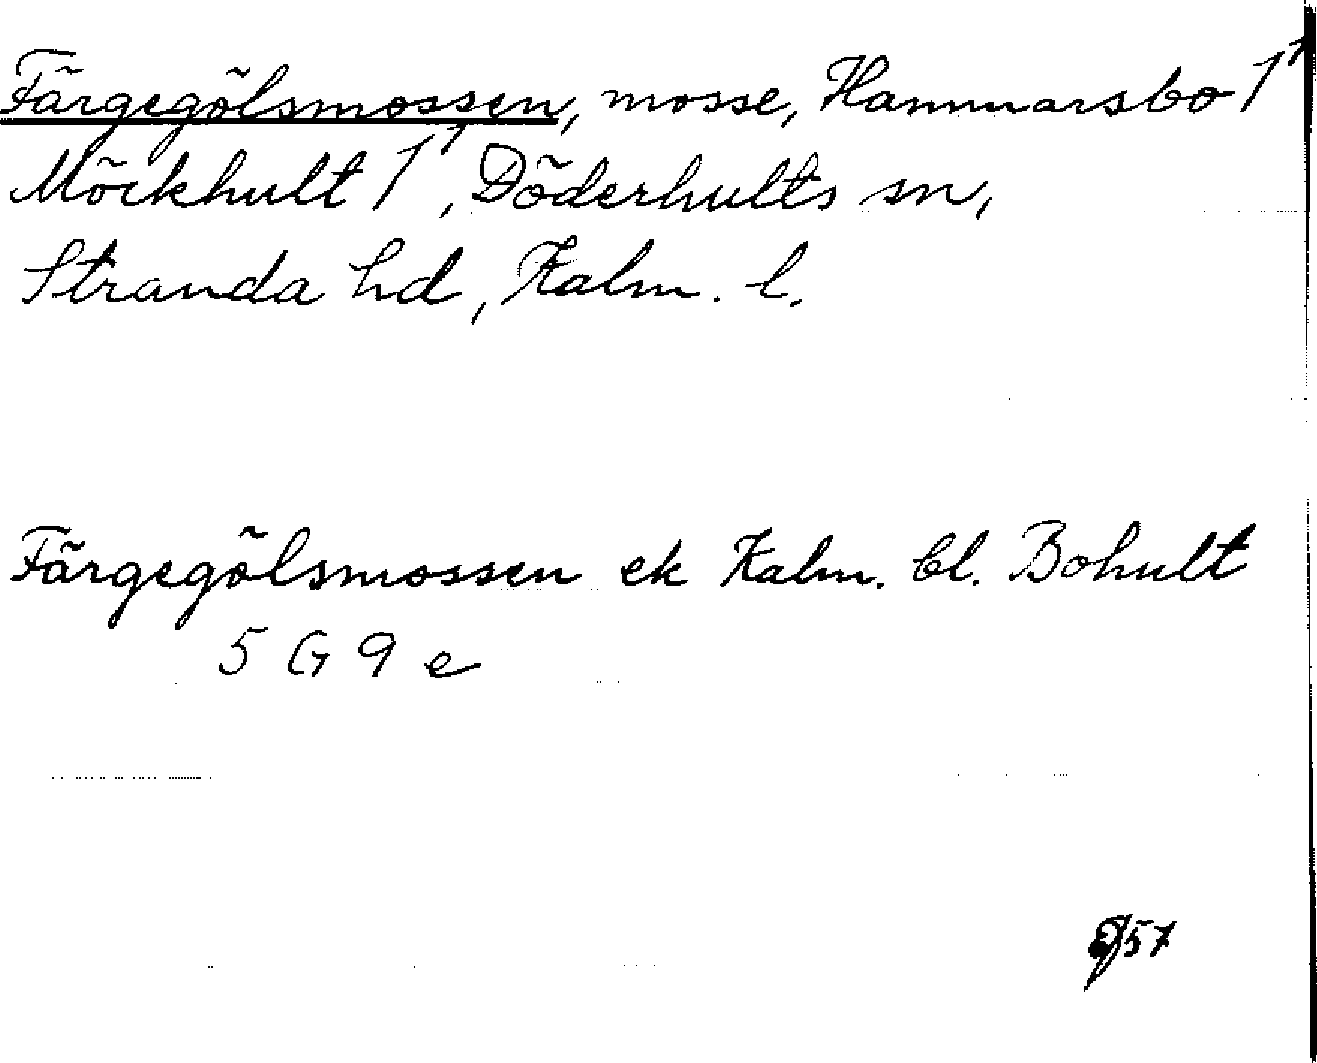 Färgegölsmossen, mosse, Hammarsbo 1¹
Möckhult 1¹, Döderhults sn,
Stranda hd, Kalm. l.
Färgegölsmossen ek Kalm. bl. Bohult
5 G 9 e
57